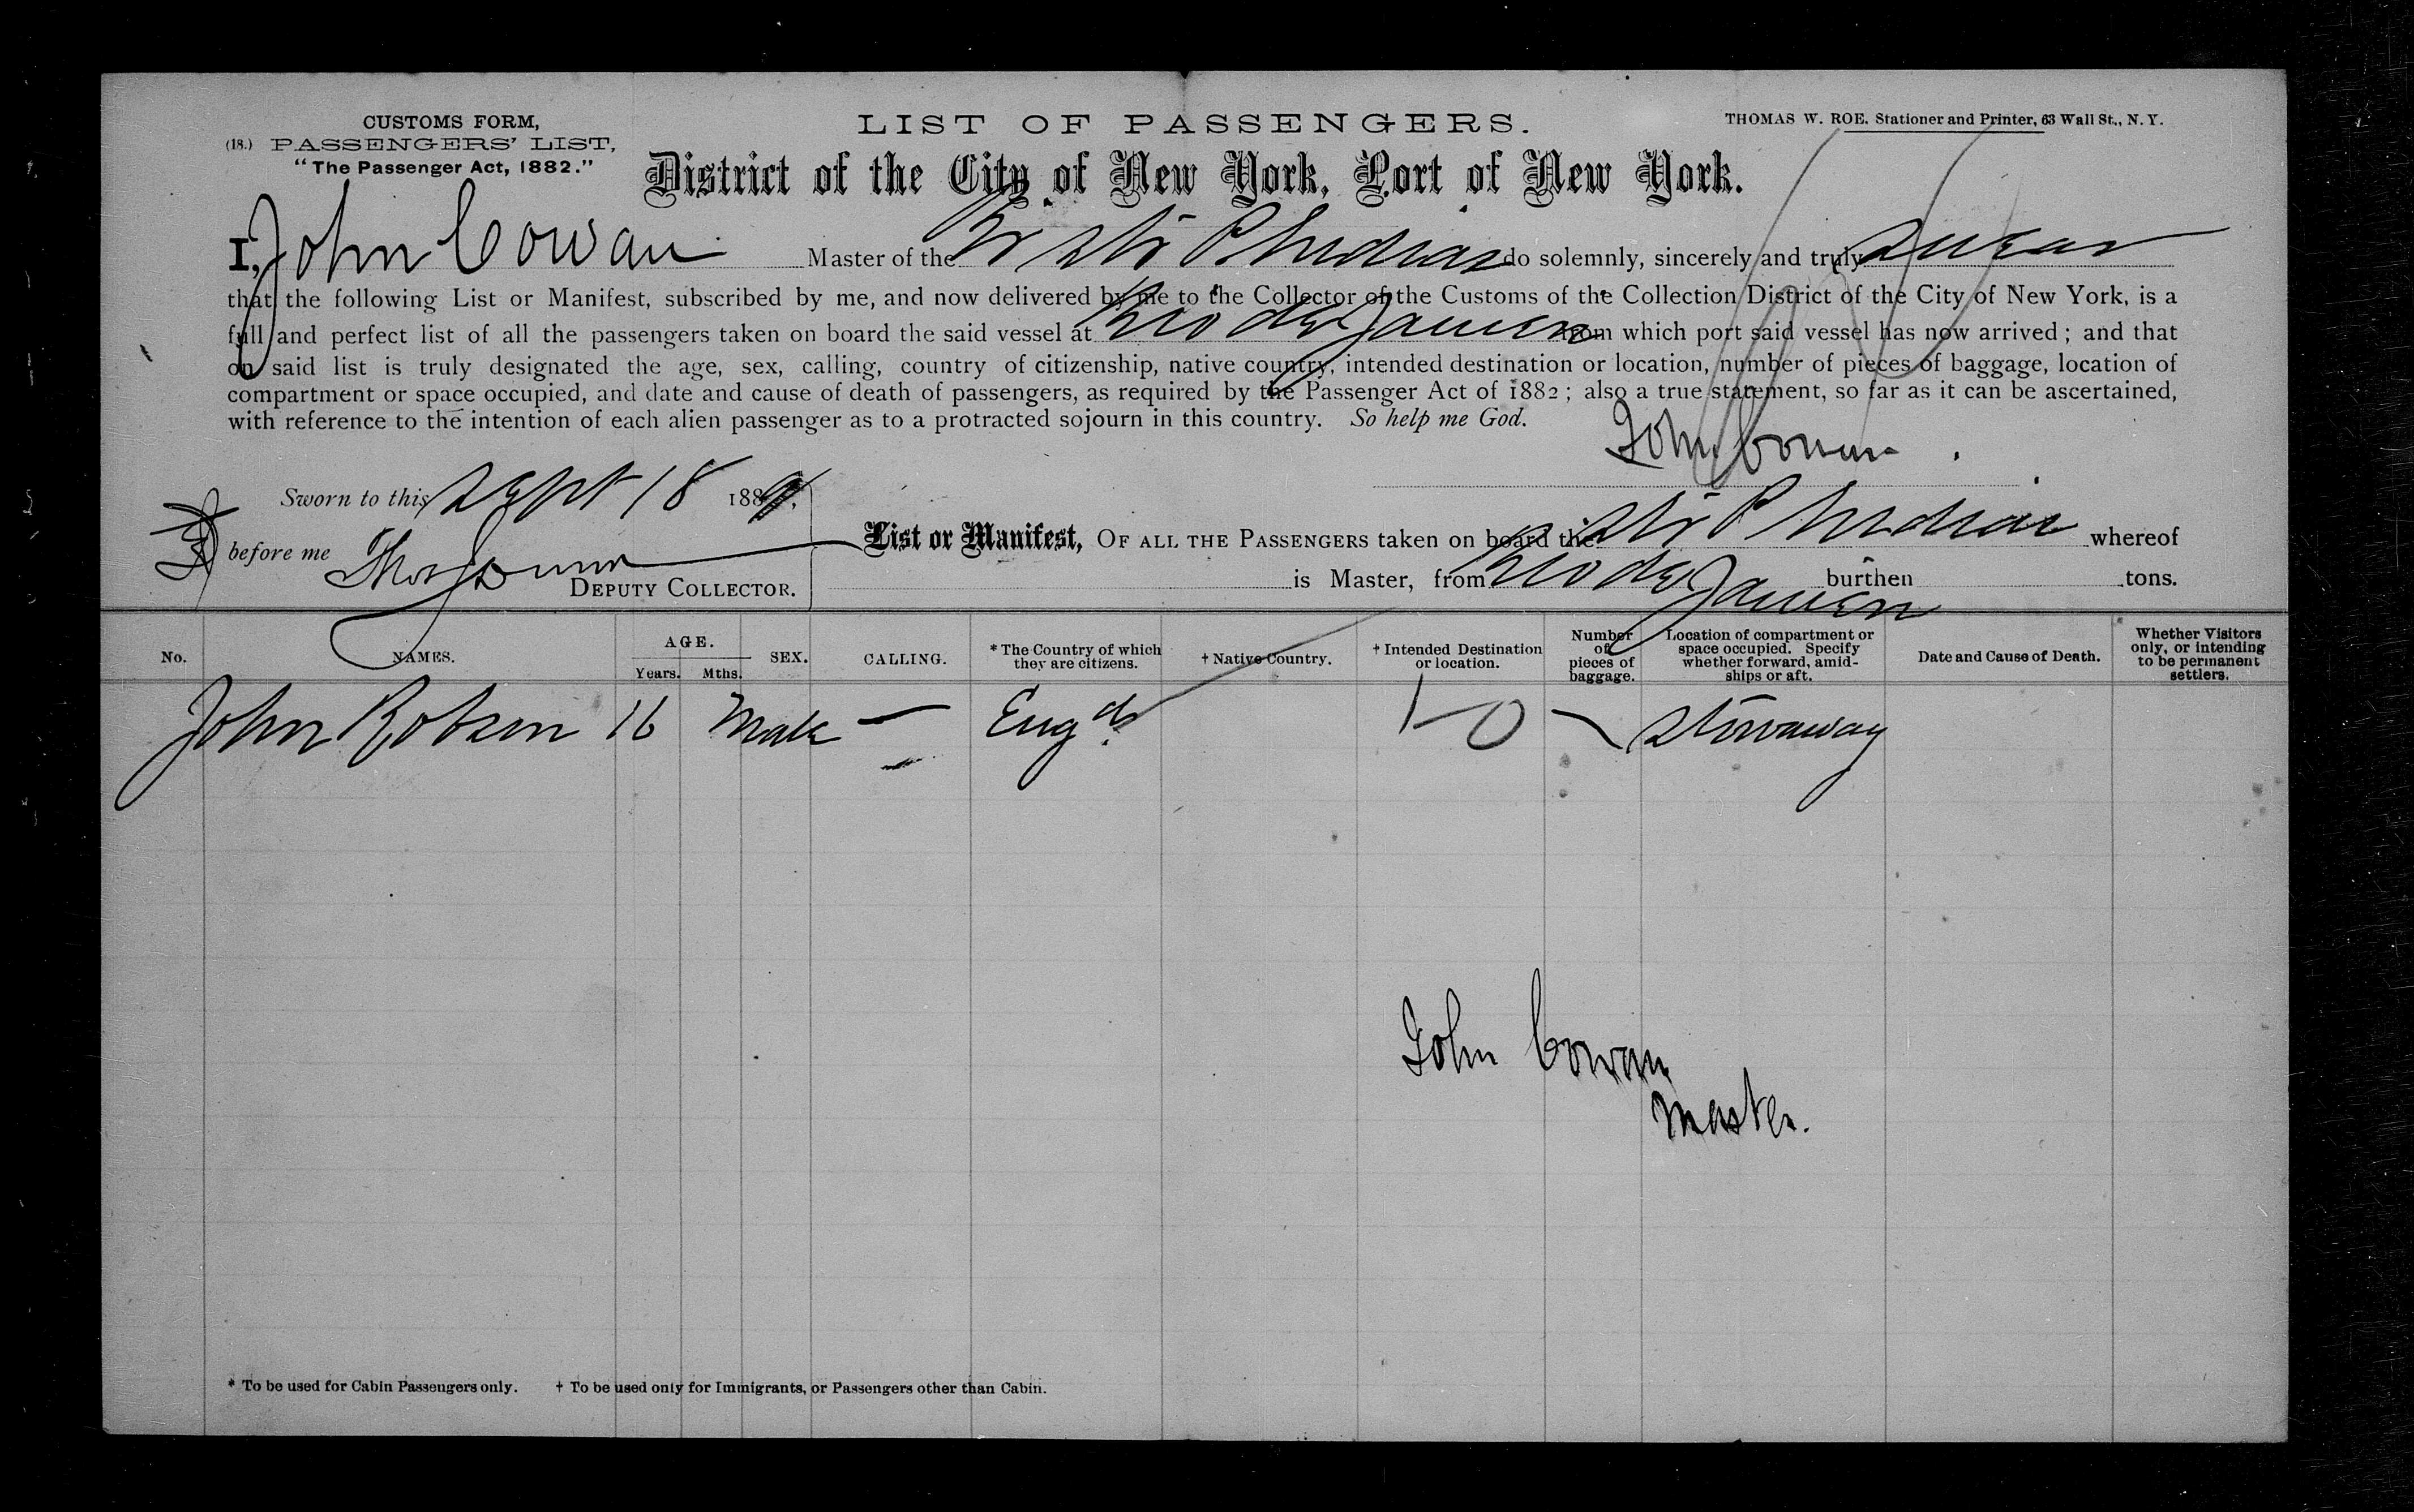 CUSTOMS FORM,
(18.) PASSENGERS' LIST,
"The Passenger Act, 1882."
LIST OF PASSENGERS.
THOMAS W. ROE. Stationer and Printer, 63 Wall St., N. Y.
District of the City of New York, Port of New York.
I, John Cowan Master of the Str P do solemnly, sincerely and truly swear
that the following List or Manifest, subscribed by me, and now delivered by me to the Collector of the Customs of the Collection District of the City of New York, is a
full and perfect list of all the passengers taken on board the said vessel at Rio de Janeiro from which port said vessel has now arrived; and that
on said list is truly designated the age, sex, calling, country of citizenship, native country, intended destination or location, number of pieces of baggage, location of
compartment or space occupied, and date and cause of death of passengers, as required by the Passenger Act of 1882; also a true statement, so far as it can be ascertained,
with reference to the intention of each alien passenger as to a protracted sojourn in this country. So help me God.
John Cowan.
Sworn to this Sept 18 1889.
before me Thos
DEPUTY COLLECTOR.
List or Manifest, OF ALL THE PASSENGERS taken on board the Str P whereof
is Master, from Rio de Janeiro burthen tons.
No. NAMES. AGE. Years. Mths. SEX. CALLING. * The Country of which they are citizens. † Native Country. † Intended Destination or location. Number of pieces of baggage. Location of compartment or space occupied. Specify whether forward, amid-ships or aft. Date and Cause of Death. Whether Visitors only, or intending to be permanent settlers.
John Robson 16 Male — Engd 1-0 Stowaway
John Cowan
Master.
* To be used for Cabin Passengers only. † To be used only for Immigrants, or Passengers other than Cabin.